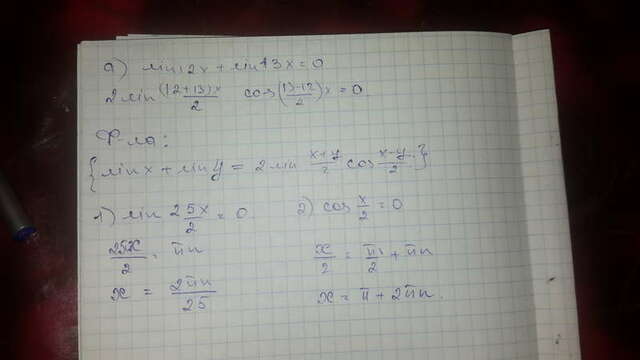 а) sin12x + sin13x = 0
2 sin (12+13)x/2 cos (13-12/2)x = 0
Ф-ла:
{sinx + siny = 2 sin x+y/2 cos x-y/2}
1) sin 25x/2 = 0. 2) cos x/2 = 0
25x/2 = πn x/2 = π/2 + πn
x = 2πn/25 x = π + 2πn.